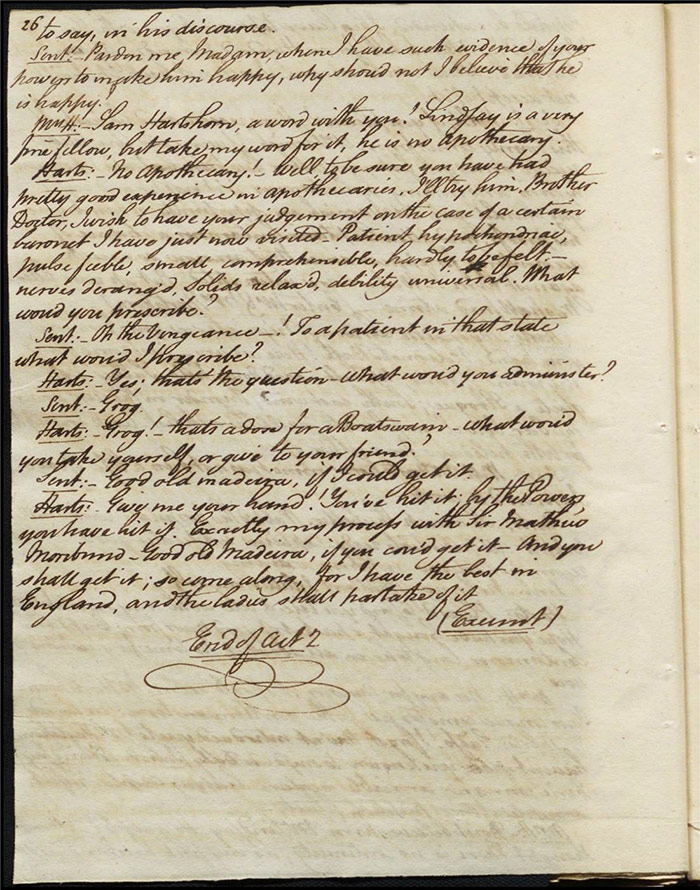 26
to say, in his discourse.
Sent:- Pardon me, Madam, where I have such evidence of your
power to make him happy, why should not I believe that he
is happy.
Mrs H:- Sam Hartshorn, a word with you! Lindsay is a very
fine fellow, but take my word for it, he is no apothecary.
Harts:- No Apothecary! - Well, to be sure you have had
pretty good experience in apothecaries, I'll try him, Brother
Doctor, I wish to have your judgement on the case of a certain
baronet I have just now visited - Patient hypochondriac,
pulse feeble, small, comprehensible, hardly to be felt -
nerves derang'd, Solids relax'd, debility universal. What
would you prescribe?
Sent:- Oh the Vengeance -! To a patient in that state
what would I prescribe?
Harts:- Yes; that's the question - What would you administer?
Sent:- Grog.
Harts:- Grog! - thats a dose for a Boatswain - what would
you take yourself, or give to your friend?
Sent:- Good old madeira, if I could get it.
Harts:- Give me your hand! You've hit it; by the Powers
you have hit it. Exactly my process with Sir Mathew
Moribund - Good old Madeira, if you could get it - And you
shall get it; so come along, for I have the best in
England, and the ladies shall partake of it
(Exeunt)
End of Act 2